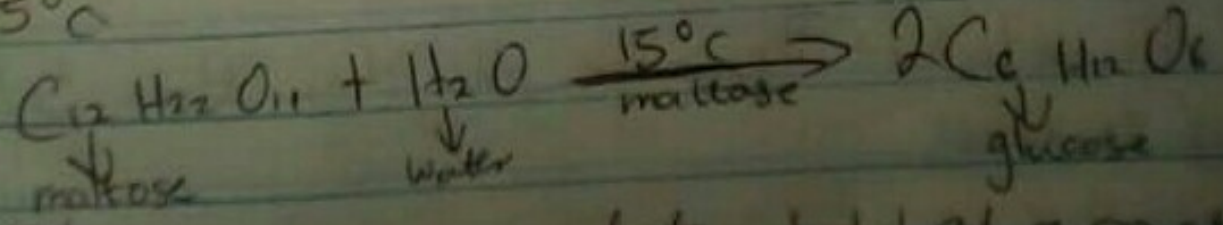 5°C
C12 H22 O11 + H2O 15°C maltase → 2C6 H12 O6
maltose water glucose